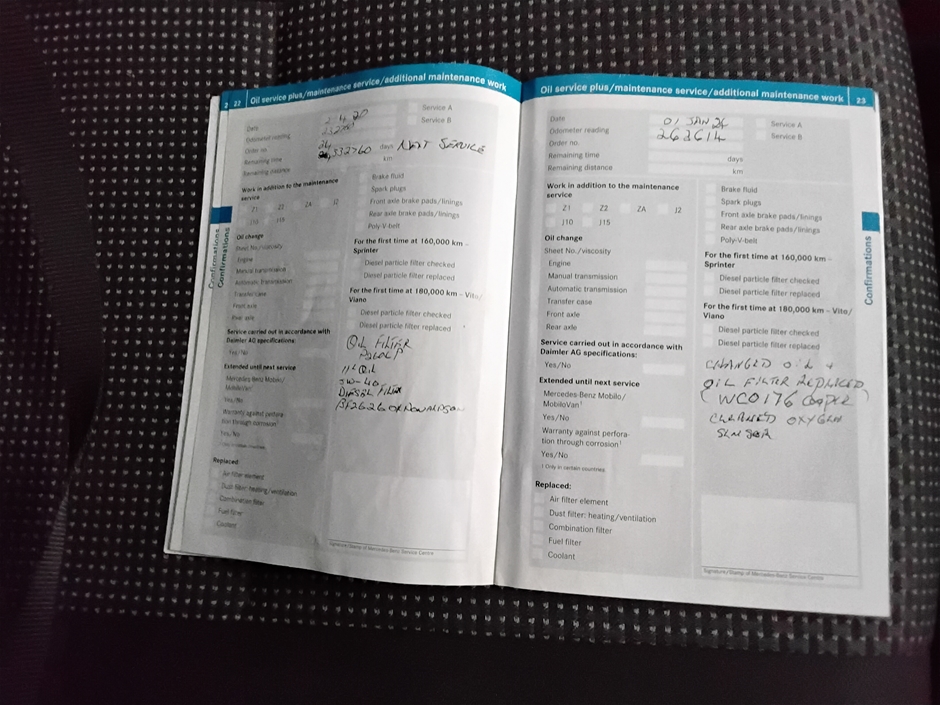 2 22 Oil service plus/maintenance service/additional maintenance work
Date 2.4.20
Service A
Odometer reading
Service B
Order no.
Remaining time days NEXT SERVICE
Remaining distance km
Work in addition to the maintenance service
Z1 Z2 ZA J2
J10 J15
Brake fluid
Spark plugs
Front axle brake pads/linings
Rear axle brake pads/linings
Poly-V-belt
Oil change
Sheet No./viscosity
Engine
Manual transmission
Automatic transmission
Transfer case
Front axle
Rear axle
For the first time at 160,000 km –
Sprinter
Diesel particle filter checked
Diesel particle filter replaced
For the first time at 180,000 km – Vito/
Viano
Diesel particle filter checked
Diesel particle filter replaced
Service carried out in accordance with
Daimler AG specifications:
Yes/No
Extended until next service
Mercedes-Benz Mobilo/
MobiloVan¹
Yes/No
Warranty against perfora-
tion through corrosion¹
Yes/No
OIL FILTER
11L OIL
5W-40
DIESEL FILTER
Replaced:
Air filter element
Dust filter: heating/ventilation
Combination filter
Fuel filter
Coolant
Signature/Stamp of Mercedes-Benz Service Centre
Confirmations
Confirmations
Oil service plus/maintenance service/additional maintenance work 23
Date 01 JAN 24
Service A
Odometer reading 263614
Service B
Order no.
Remaining time days
Remaining distance km
Work in addition to the maintenance
service
Z1 Z2 ZA J2
J10 J15
Brake fluid
Spark plugs
Front axle brake pads/linings
Rear axle brake pads/linings
Poly-V-belt
Oil change
Sheet No./viscosity
Engine
Manual transmission
Automatic transmission
Transfer case
Front axle
Rear axle
For the first time at 160,000 km –
Sprinter
Diesel particle filter checked
Diesel particle filter replaced
For the first time at 180,000 km – Vito/
Viano
Diesel particle filter checked
Diesel particle filter replaced
Service carried out in accordance with
Daimler AG specifications:
Yes/No
Extended until next service
Mercedes-Benz Mobilo/
MobiloVan¹
Yes/No
Warranty against perfora-
tion through corrosion¹
Yes/No
¹ Only in certain countries
CHANGED OIL +
OIL FILTER REPLACED
(WCO176 COOPER)
CLEANED OXYGEN
SENSOR
Replaced:
Air filter element
Dust filter: heating/ventilation
Combination filter
Fuel filter
Coolant
Signature/Stamp of Mercedes-Benz Service Centre
Confirmations